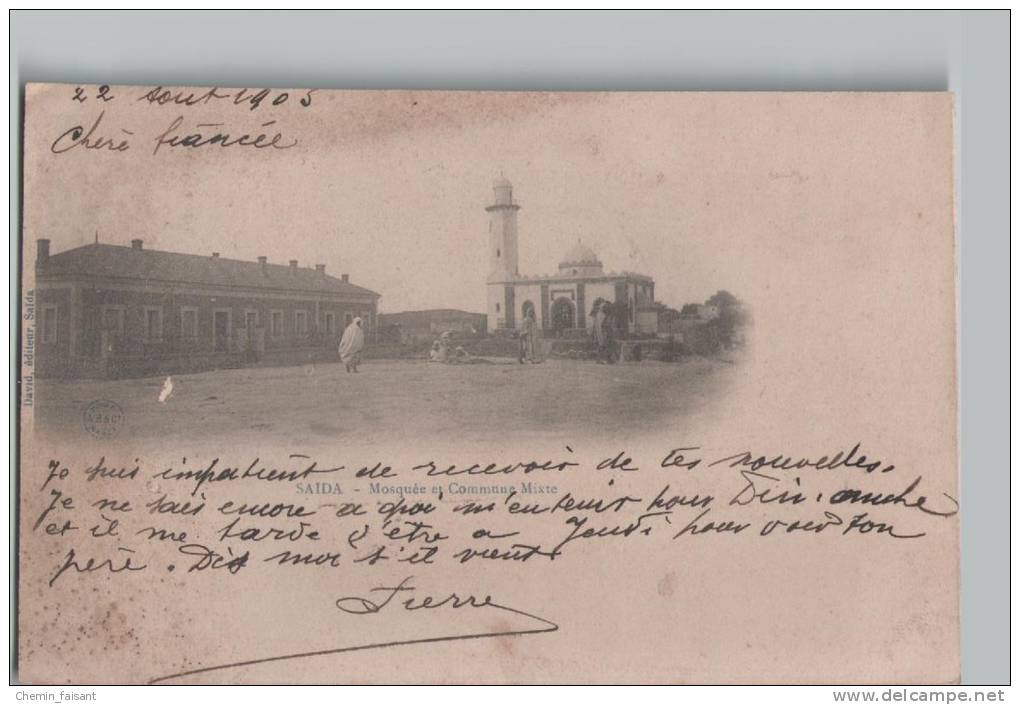 22 Aout 1905
Chère fiancée
David, éditeur, Saïda
Je suis impatient de recevoir de tes nouvelles.
SAÏDA - Mosquée et Commune Mixte
Je ne sais encore a quoi m'en tenir pour Dimanche
et il me tarde d'être a Jeudi pour voir ton
père. Dis moi s'il vient.
Pierre
Chemin_faisant
www.delcampe.net